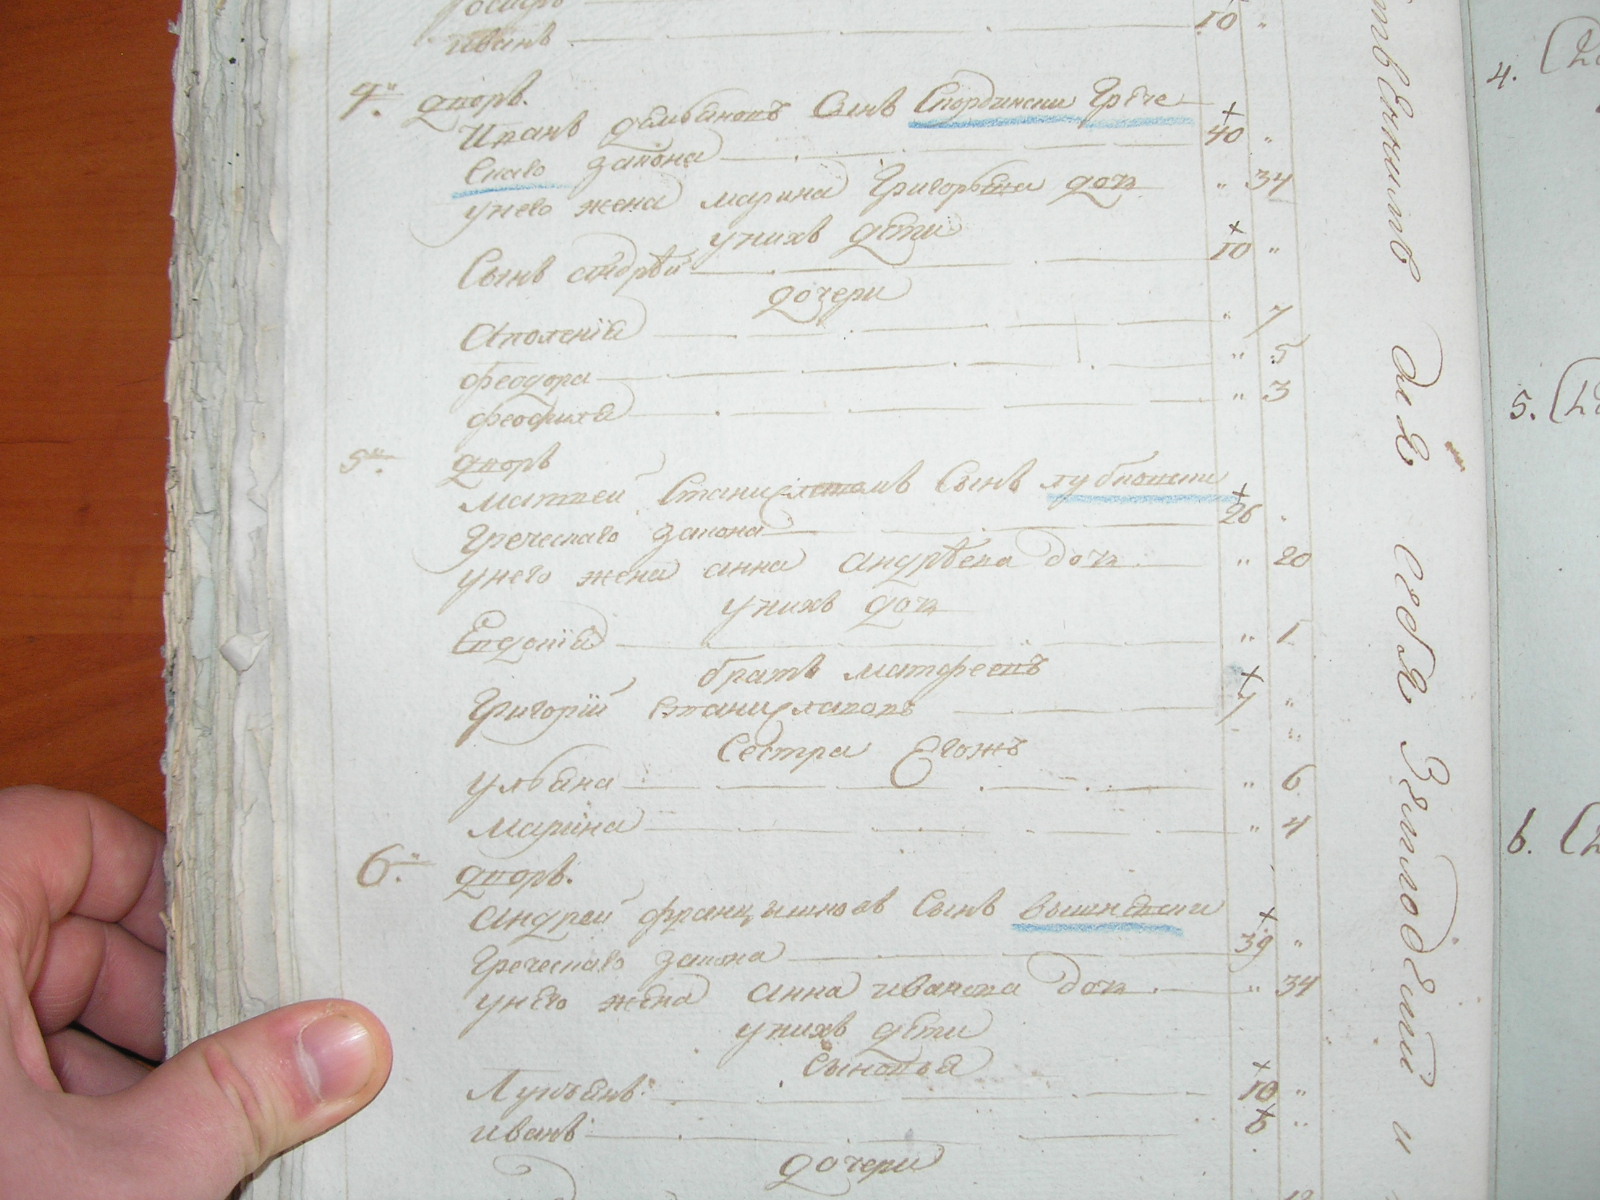 иванъ 10 „
4. дворъ.
Иванъ демьяновъ Сынъ Грече
скаго закона 40 „
унего жена марина Григорьева доч „ 34
унихъ дѣти
Сынъ андрѣй 10 „
дочери
Аполенія „ 7
феодора „ 5
феофила „ 3
5. дворъ
матвей Станиславовъ Сынъ лубковски
Греческаго закона 26 „
унего жена анна андрѣева доч „ 20
унихъ доч
Евдокія „ 1
братъ матфеевъ
Григорій Станиславовъ 7 „
Сестра Егожъ
ульяна „ 6
Марина „ 4
6. дворъ.
андрей францышковъ Сынъ вишневски
Греческаго закона 39 „
унего жена анна иванова доч „ 34
унихъ дѣти
Сыновья
Лукьянъ 10 „
иванъ 6 „
дочери
для себя Землодѣлій и
4.
5.
6.